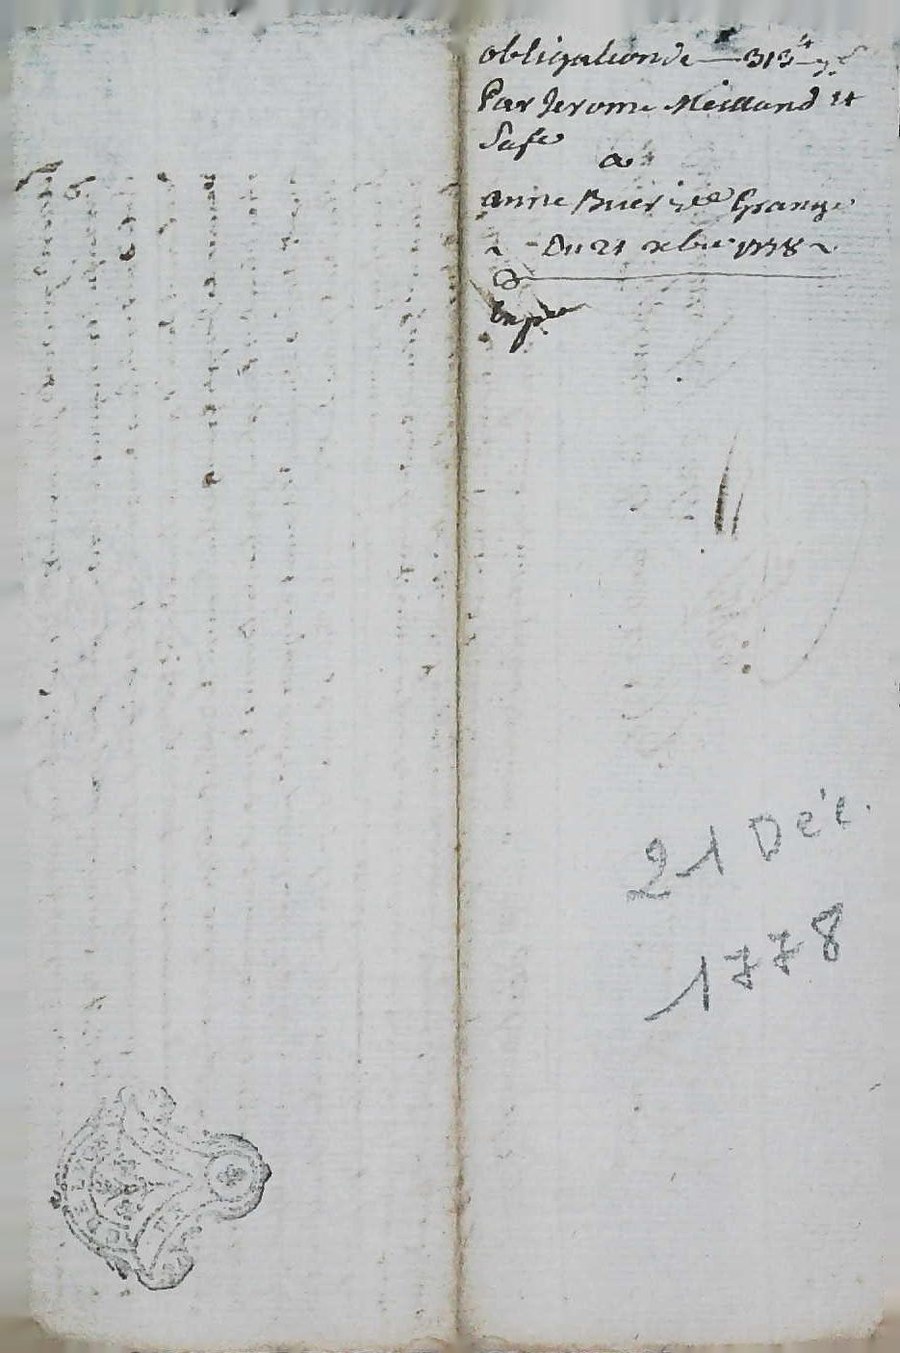 obligation de — 313 tt
Par Jerome Meilland et
Sa fe
a
anne Buer Grange
Du 21 xbre 1778
Exped
21 Déc.
1778